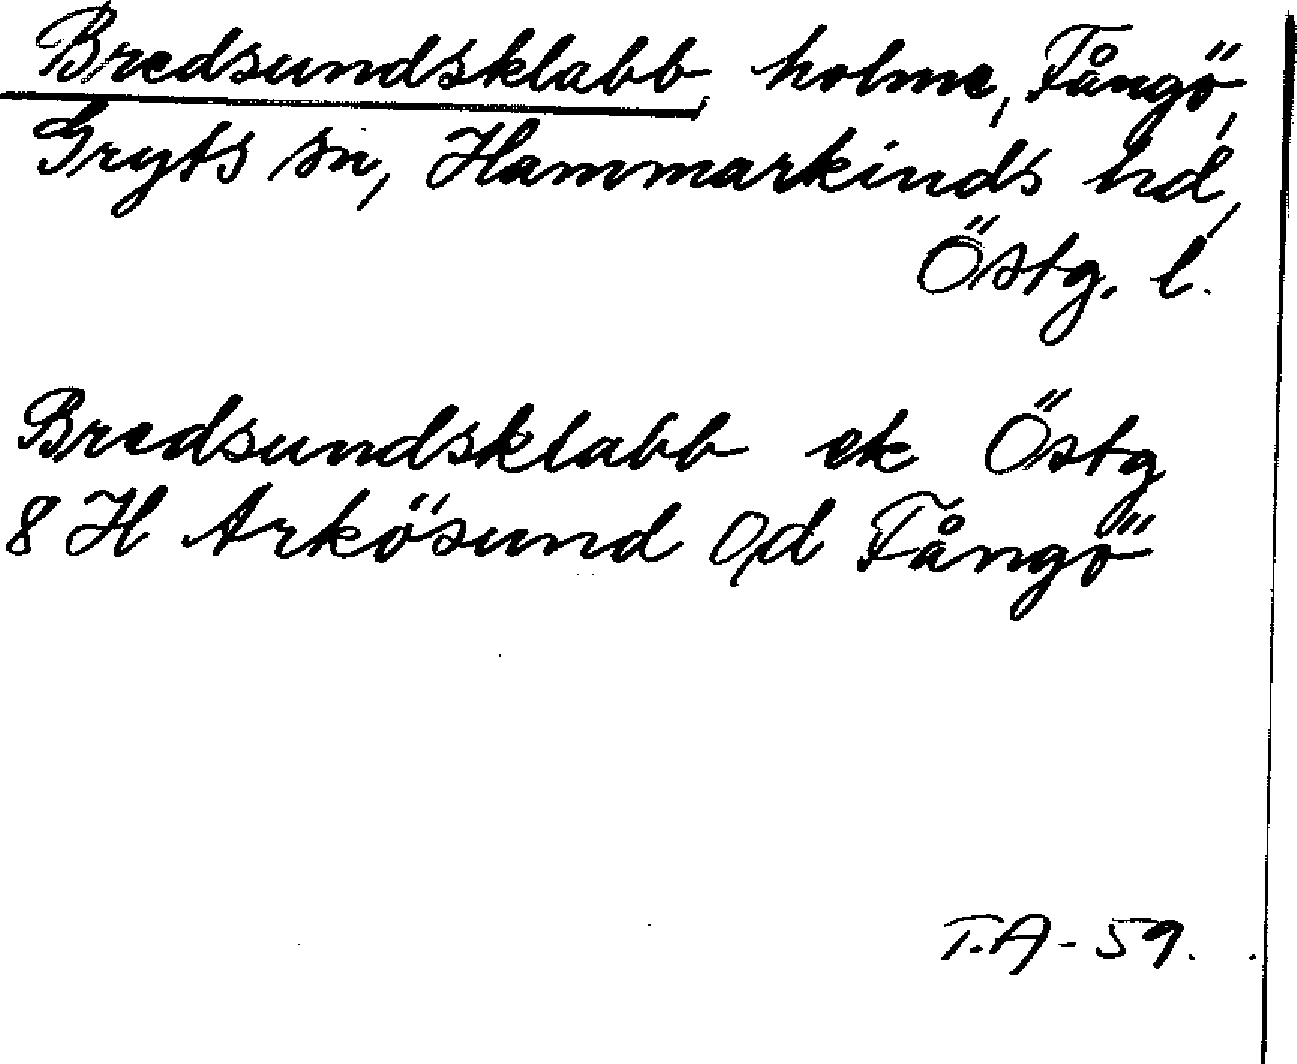 Bredsundsklabb, holme, Fångö,
Gryts sn, Hammarkinds hd,
Östg. l.
Bredsundsklabb ek Östg
8 H Arkösund Od Fångö
T.A - 59.